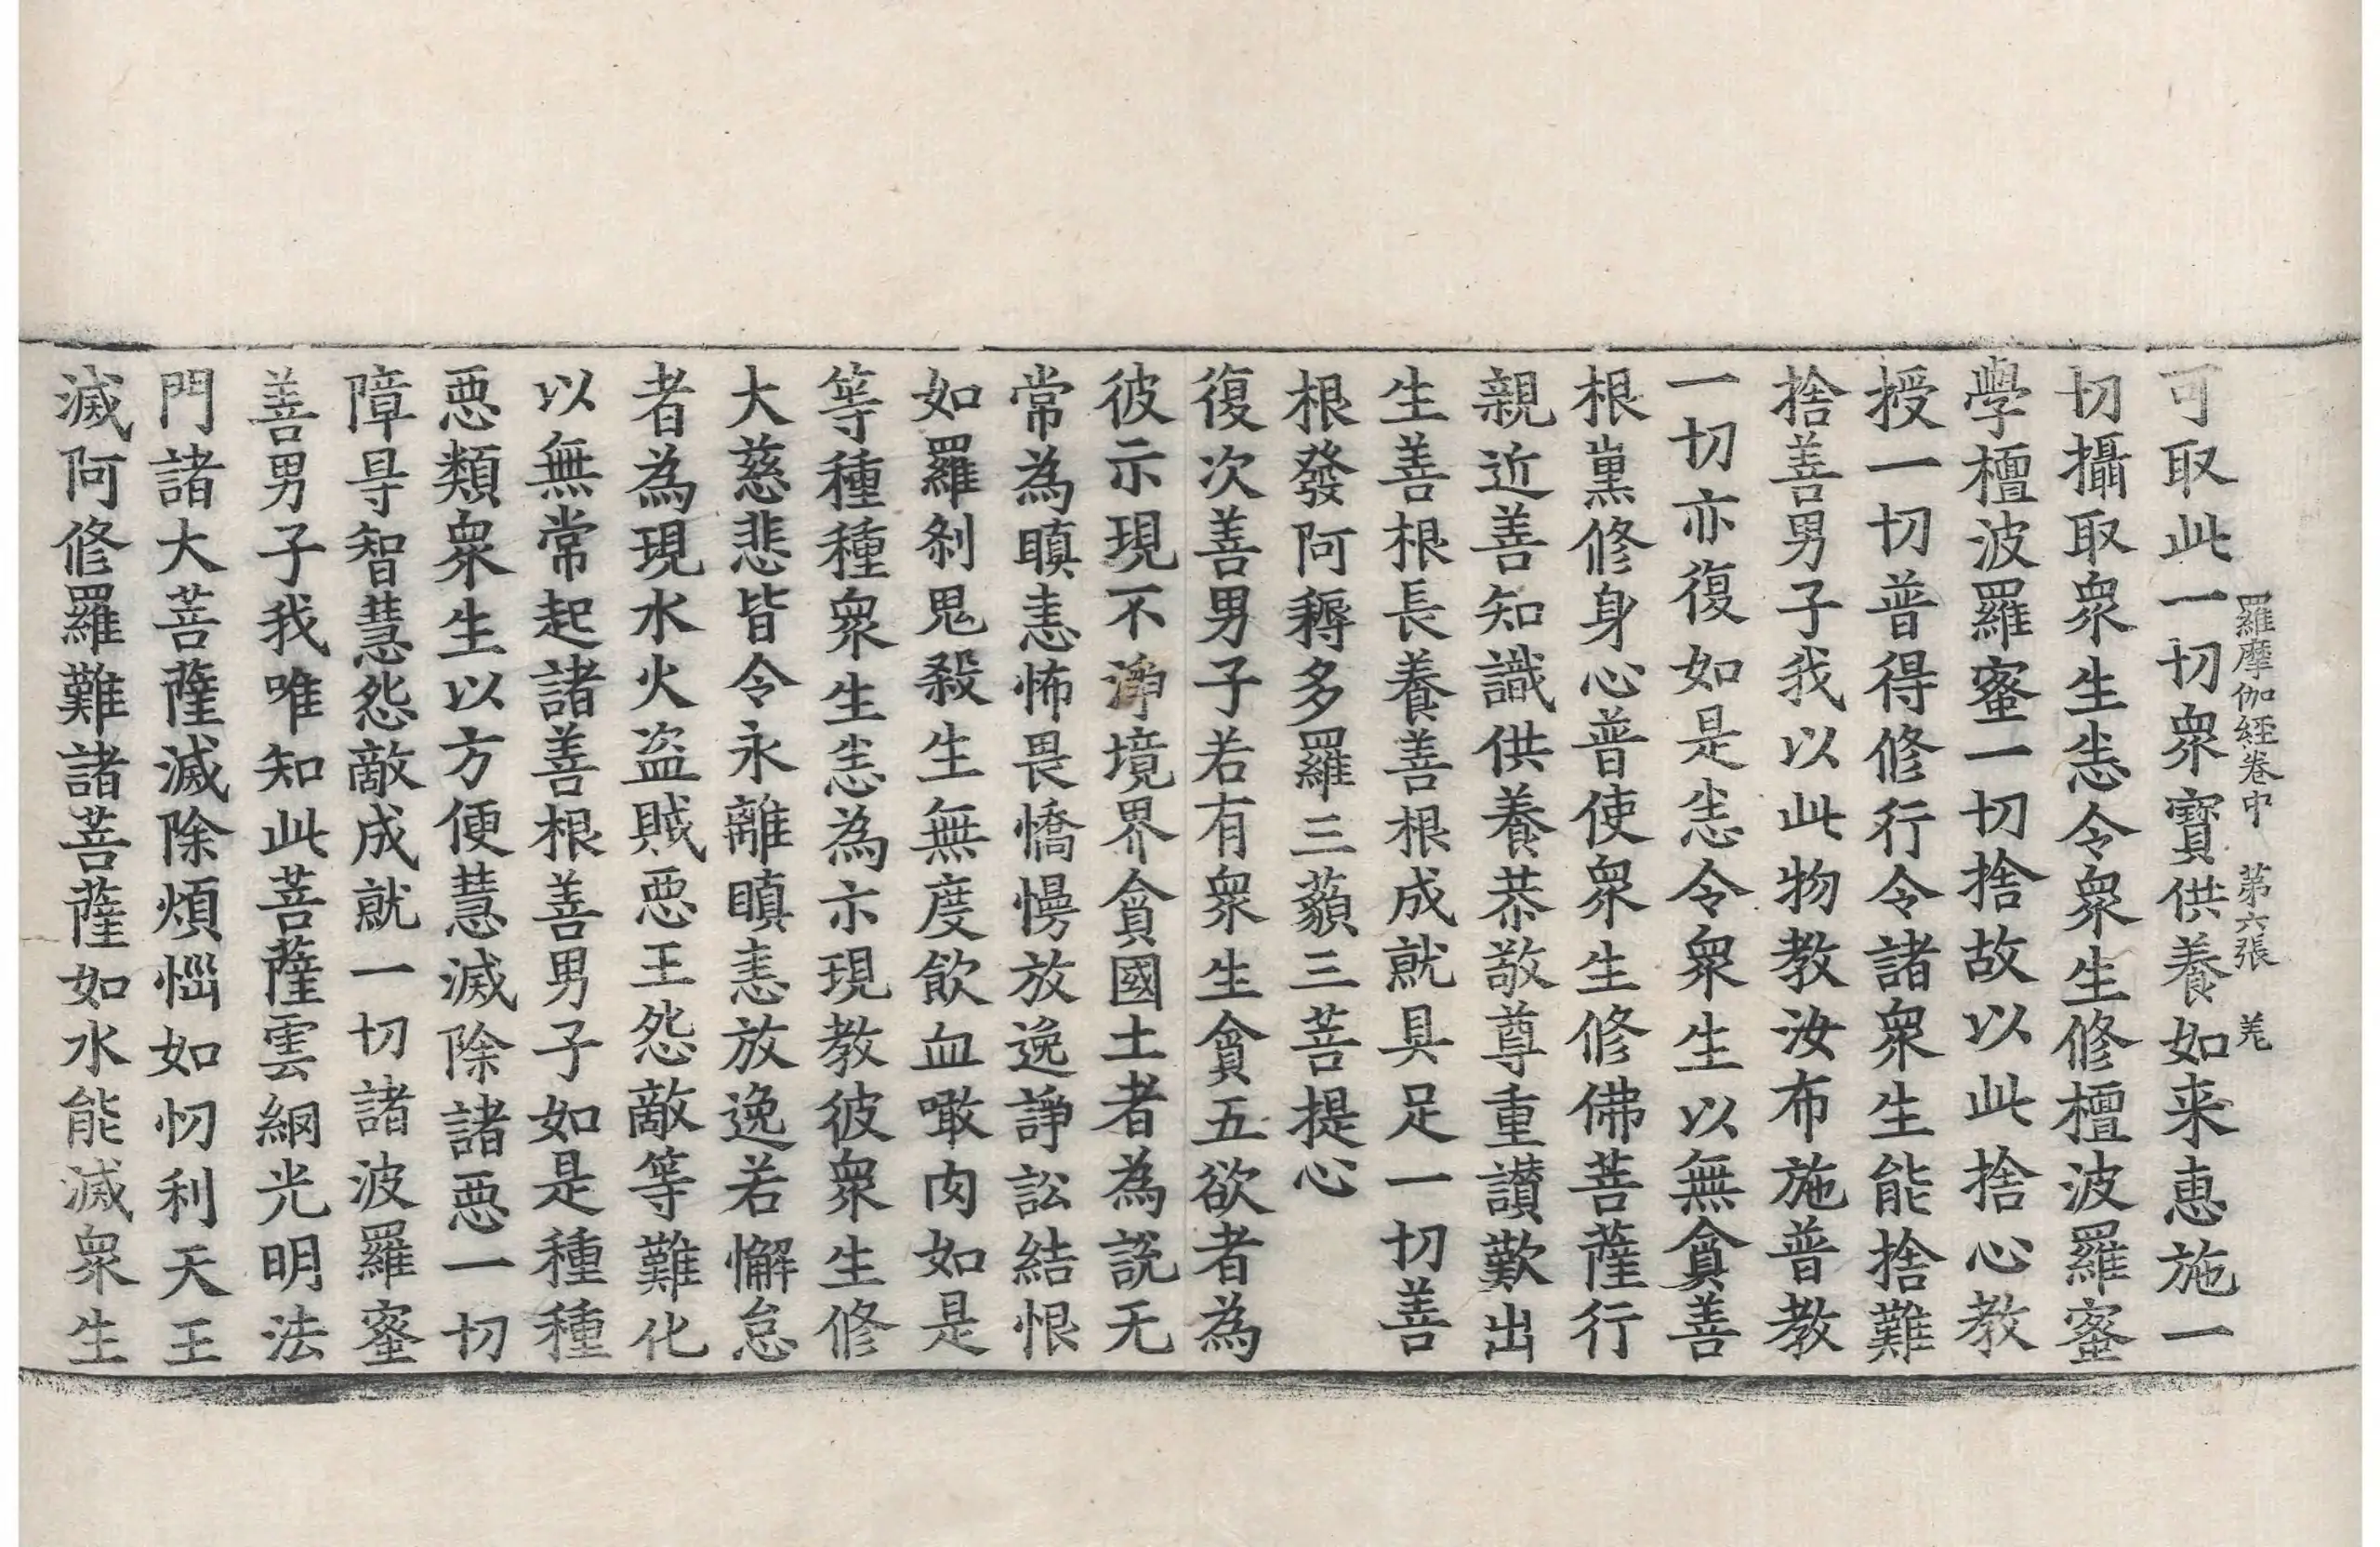 羅摩伽経卷中 第六張 羌
可取此一切衆寶供養如来惠施一
切攝取衆生恙令衆生修檀波羅蜜
學檀波羅蜜一切捨故以此捨心教
授一切普得修行令諸衆生能捨難
捨善男子我以此物教汝布施普教
一切亦復如是恙令衆生以無貪善
根熏修身心普使衆生修佛菩薩行
親近善知識供養恭敬尊重讃歎出
生善根長養善根成就具足一切善
根發阿耨多羅三藐三菩提心
復次善男子若有衆生貪五欲者為
彼示現不淨境界貪國土者為說无
常為瞋恚怖畏憍慢放逸諍訟結恨
如羅剎鬼殺生無度飲血噉肉如是
等種種衆生恙為示現教彼衆生修
大慈悲皆令永離瞋恚放逸若懈怠
者為現水火盗賊惡王怨敵等難化
以無常起諸善根善男子如是種種
惡類衆生以方便慧滅除諸惡一切
障㝵智慧怨敵成就一切諸波羅蜜
善男子我唯知此菩薩雲網光明法
門諸大菩薩滅除煩惱如忉利天王
滅阿修羅難諸菩薩如水能滅衆生